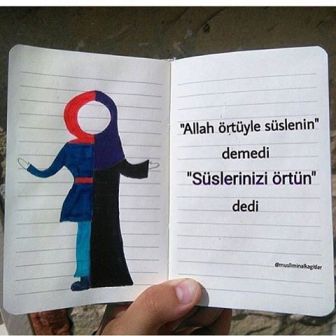 "Allah örtüyle süslenin"
demedi
"Süslerinizi örtün"
dedi
@musliminalkagitlar